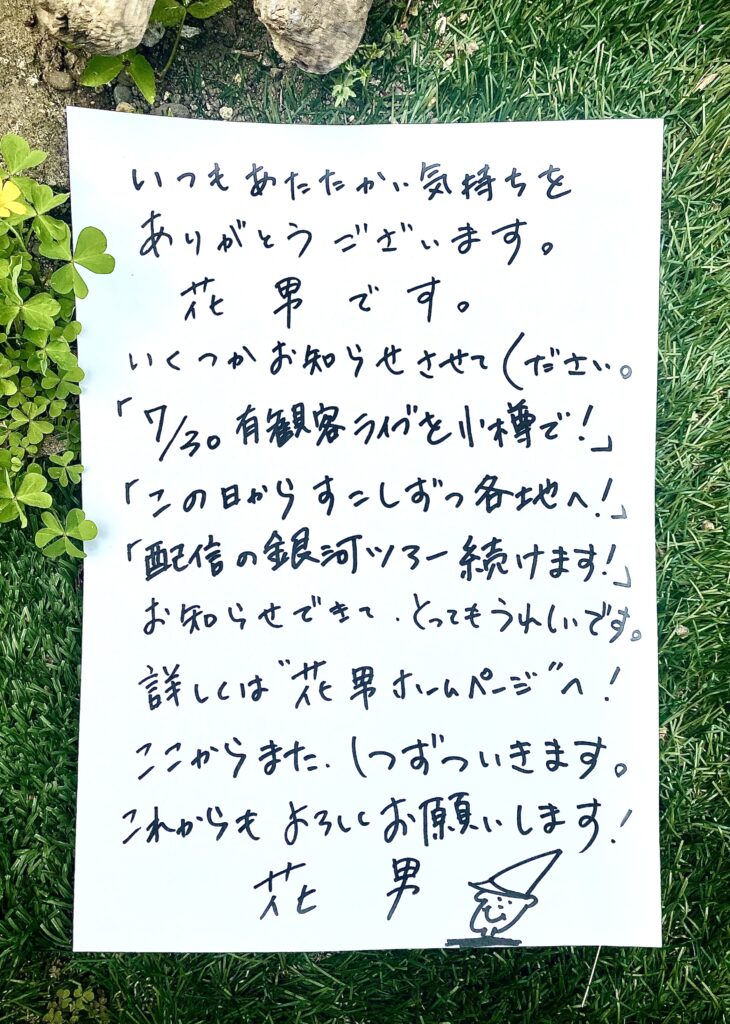 いつもあたたかい気持ちを
ありがとうございます。
花男です。
いくつかお知らせさせてください。
「7/30 有観客ライブを小樽で!」
「この日からすこしずつ各地へ!」
「配信の銀河ツアー続けます!」
お知らせできて、とってもうれしいです。
詳しくは"花男ホームページ"へ!
ここからまた、1つずついきます。
これからもよろしくお願いします!
花男